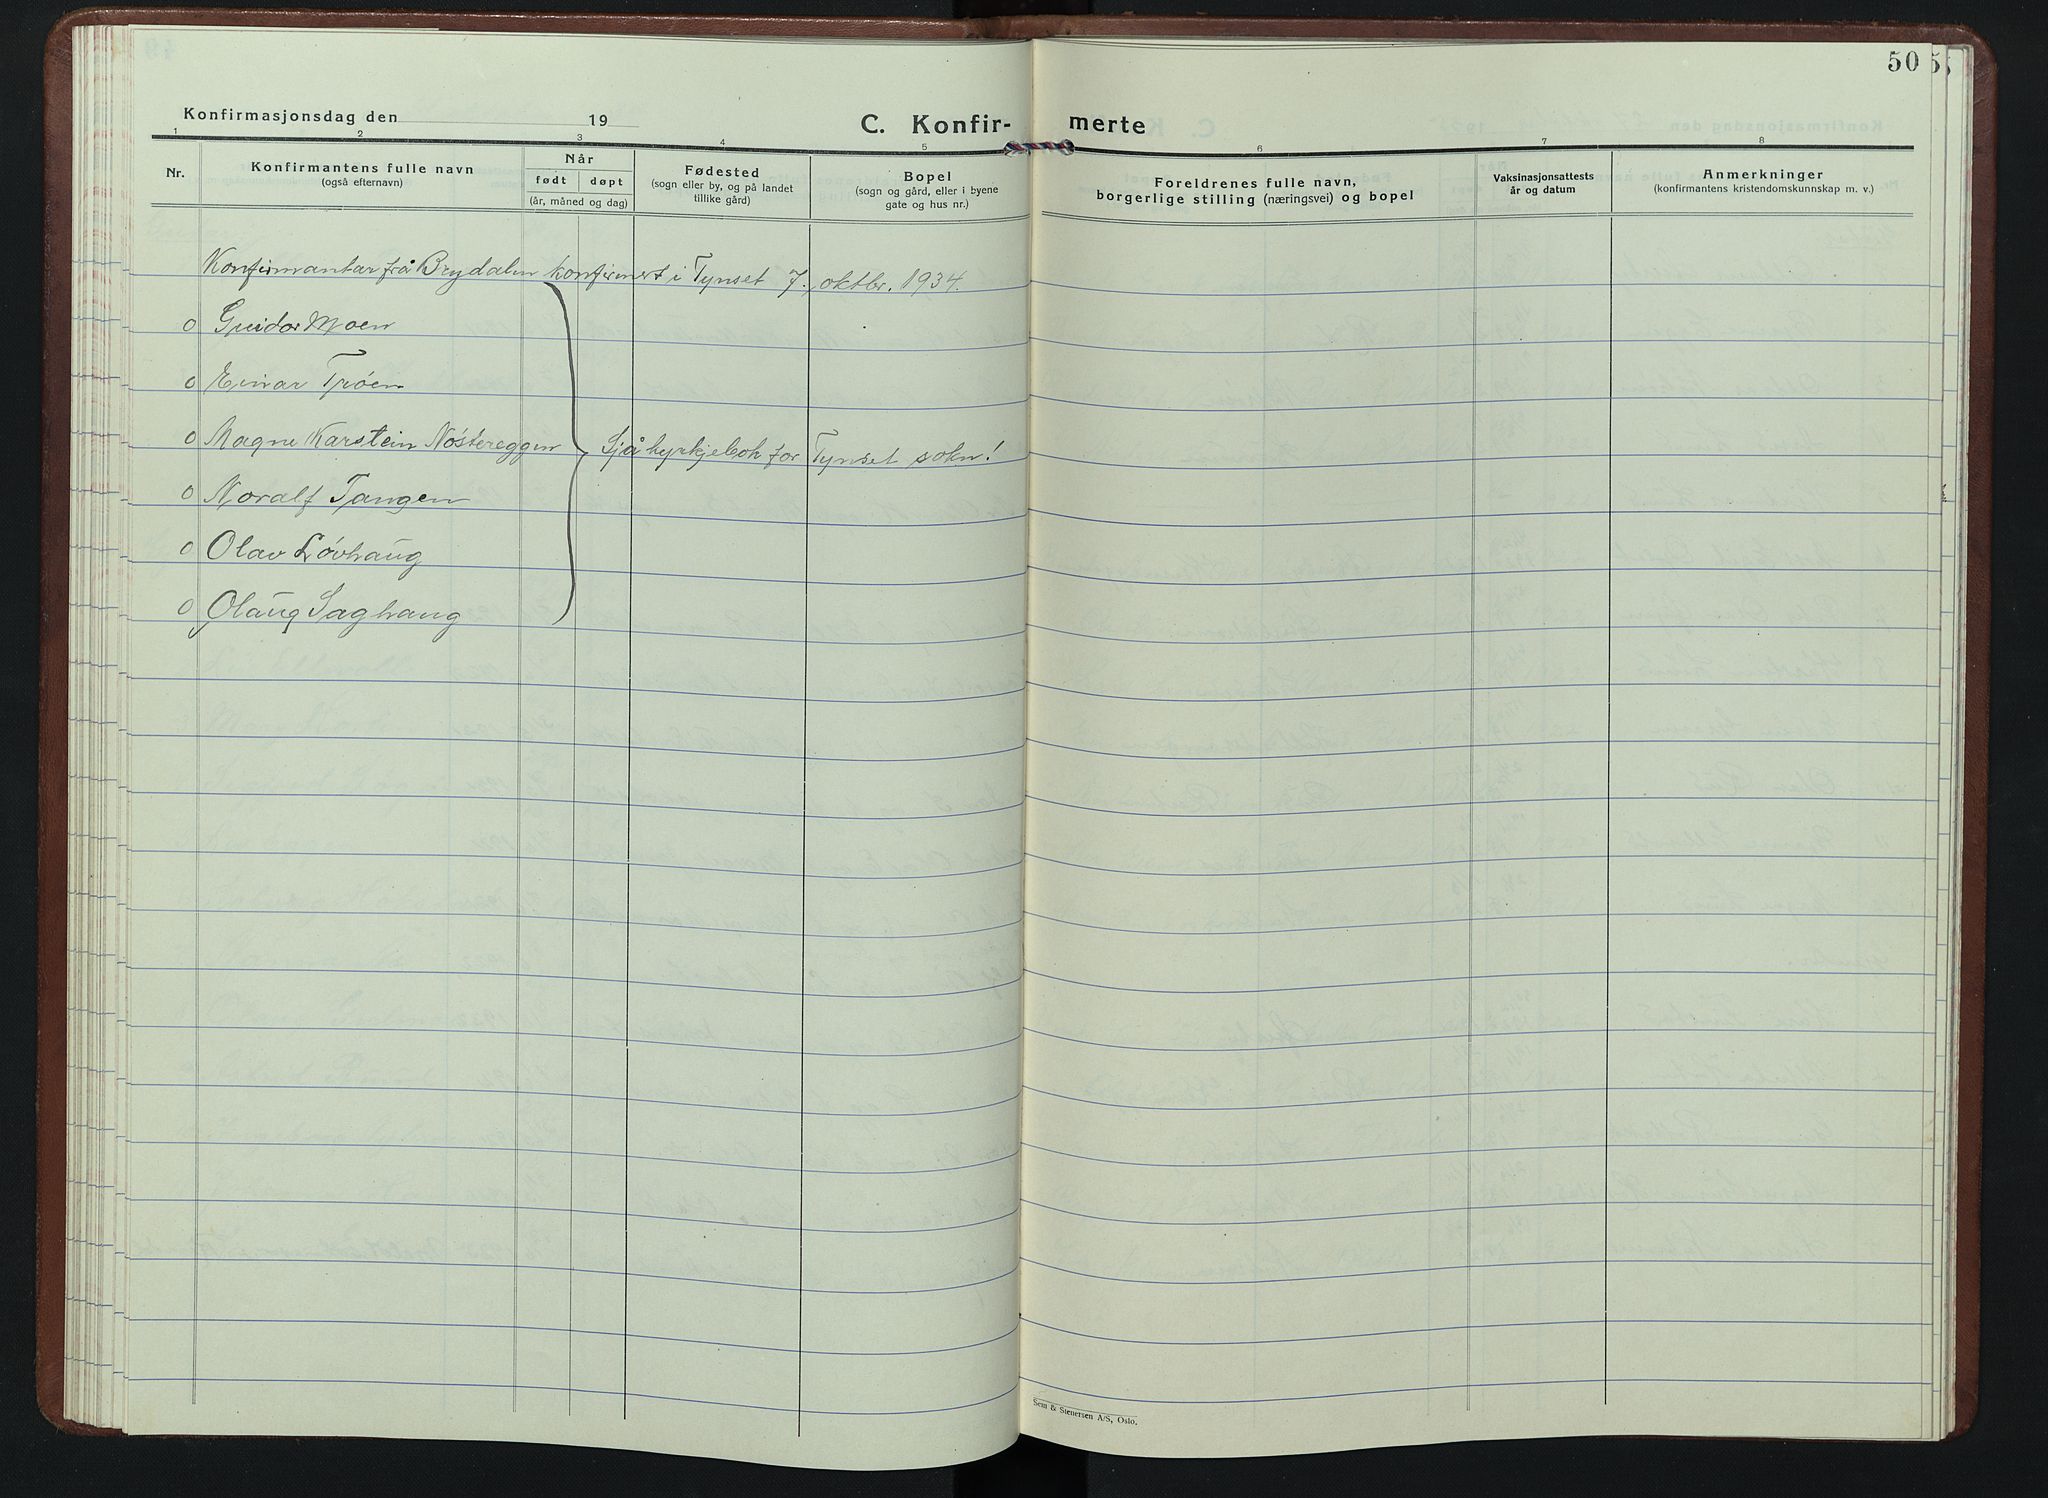 50
Konfirmasjonsdag den 19
C. Konfir- merte
1 2 3 4 5 6 7 8
Nr. Konfirmantens fulle navn (også efternavn) Når født døpt (år, måned og dag) Fødested (sogn eller by, og på landet tillike gård) Bopel (sogn og gård, eller i byene gate og hus nr.) Foreldrenes fulle navn, borgerlige stilling (næringsvei) og bopel Vaksinasjonsattests år og datum Anmerkninger (konfirmantens kristendomskunnskap m. v.)
Konfirmantar frå Brydalen konfirmert i Tynset 7. oktbr. 1934.
0 Guidor Moen
0 Einar Trøen
0 Magne Karstein Nøstereggen Sjå kyrkjebok for Tynset sokn!
0 Noralf Tangen
0 Olav Løvhaug
0 Olaug Saghaug
Sem & Stenersen A/S, Oslo.